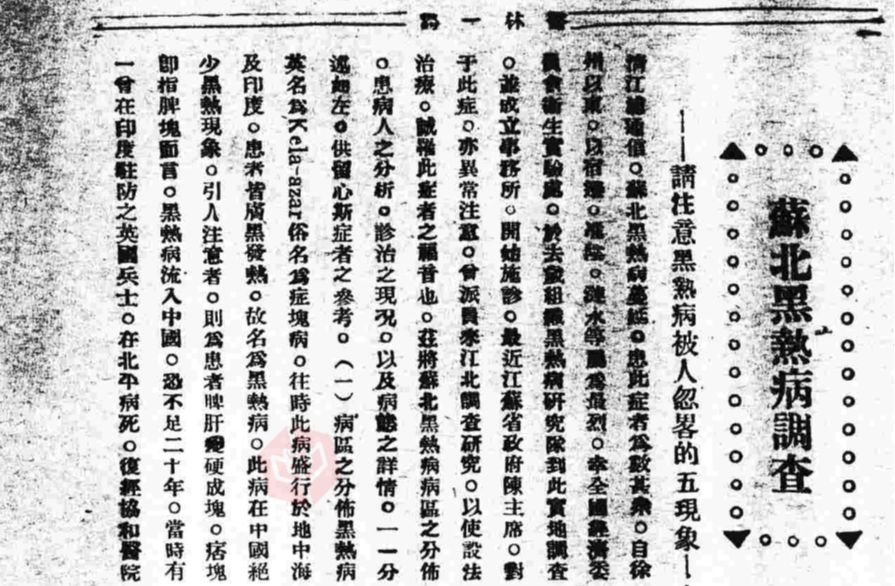 醫林一諤
蘇北黑熱病調查
——請注意黑熱病被人忽畧的五現象——
清江浦通信。蘇北黑熱病蔓延。患此症者爲數甚衆。自徐
州以東。以宿遷。淮陰。漣水等縣爲最烈。幸全國經濟委
員會衛生實驗處。於去歲組織黑熱病研究隊到此實地調查
。並成立事務所。開始施診。最近江蘇省政府陳主席。對
于此症。亦異常注意。曾派員來江北調查研究。以便設法
治療。誠罹此症者之福音也。茲將蘇北黑熱病病區之分佈
。患病人之分析。診治之現况。以及病態之詳情。一一分
述如左。供留心斯症者之參考。（一）病區之分佈黑熱病
英名爲Kela-azar俗名爲症塊病。往時此病盛行於地中海
及印度。患者皆膚黑發熱。故名爲黑熱病。此病在中國絕
少黑熱現象。引人注意者。則爲患者脾肝變硬成塊。痞塊
卽指脾塊而言。黑熱病流入中國。恐不足二十年。當時有
一曾在印度駐防之英國兵士。在北平病死。復經協和醫院